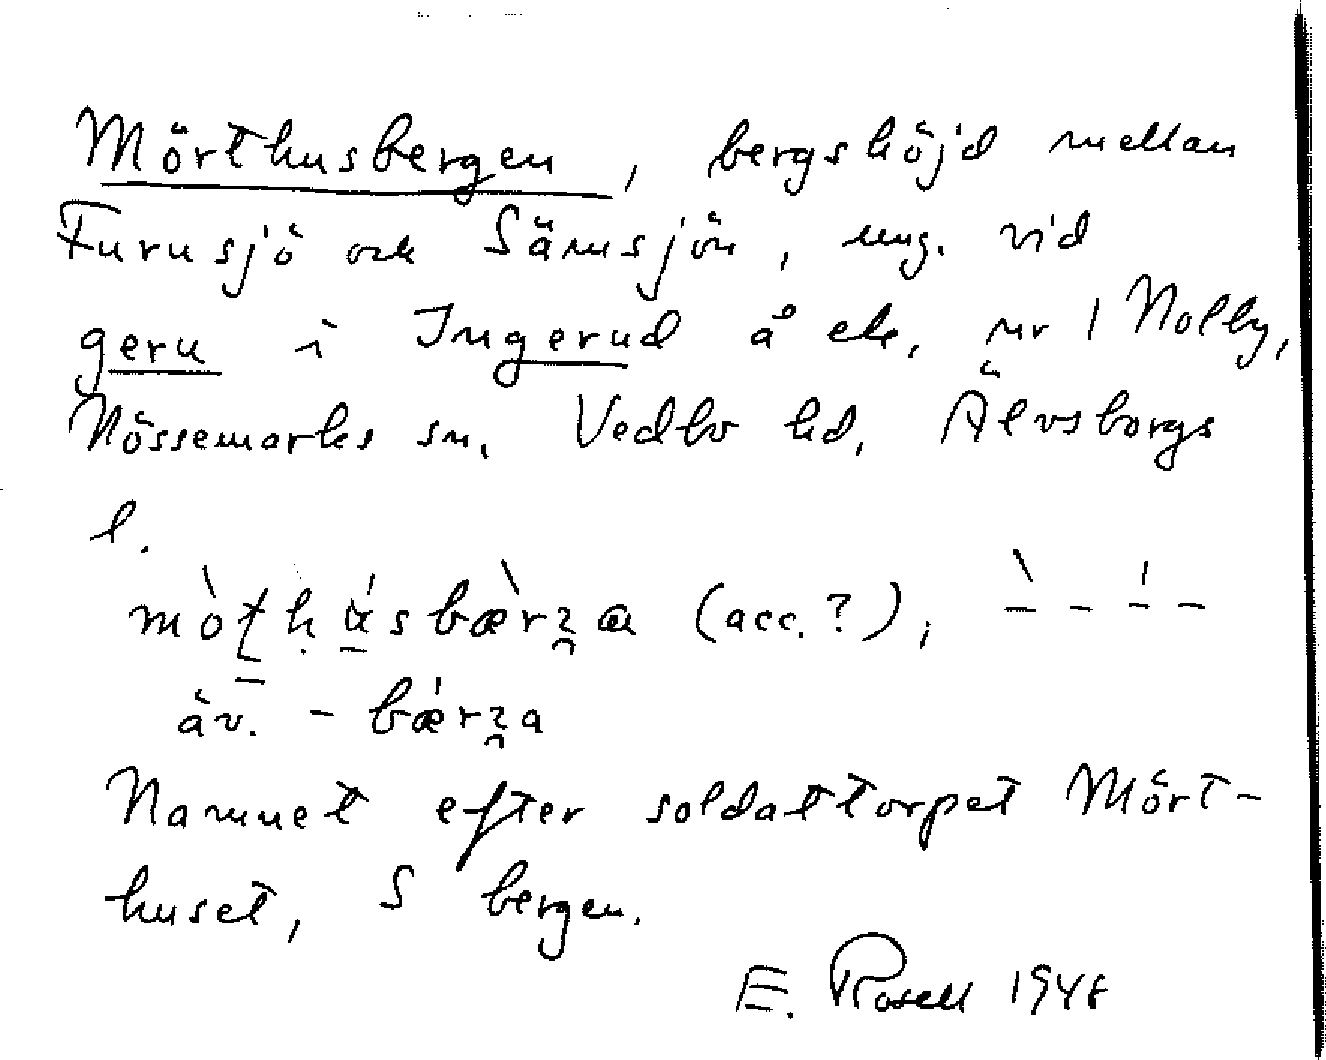 Mörthusbergen, bergshöjd mellan
Furusjö och Sännsjön, ung. vid
geru i Ingerud å ek. nr 1 Nolby,
Nössemarks sn, Vedbo hd, Älvsborgs
l.
(acc.?),
äv.
Namnet efter soldattorpet Mört-
huset, S bergen.
E. Rosell 1948